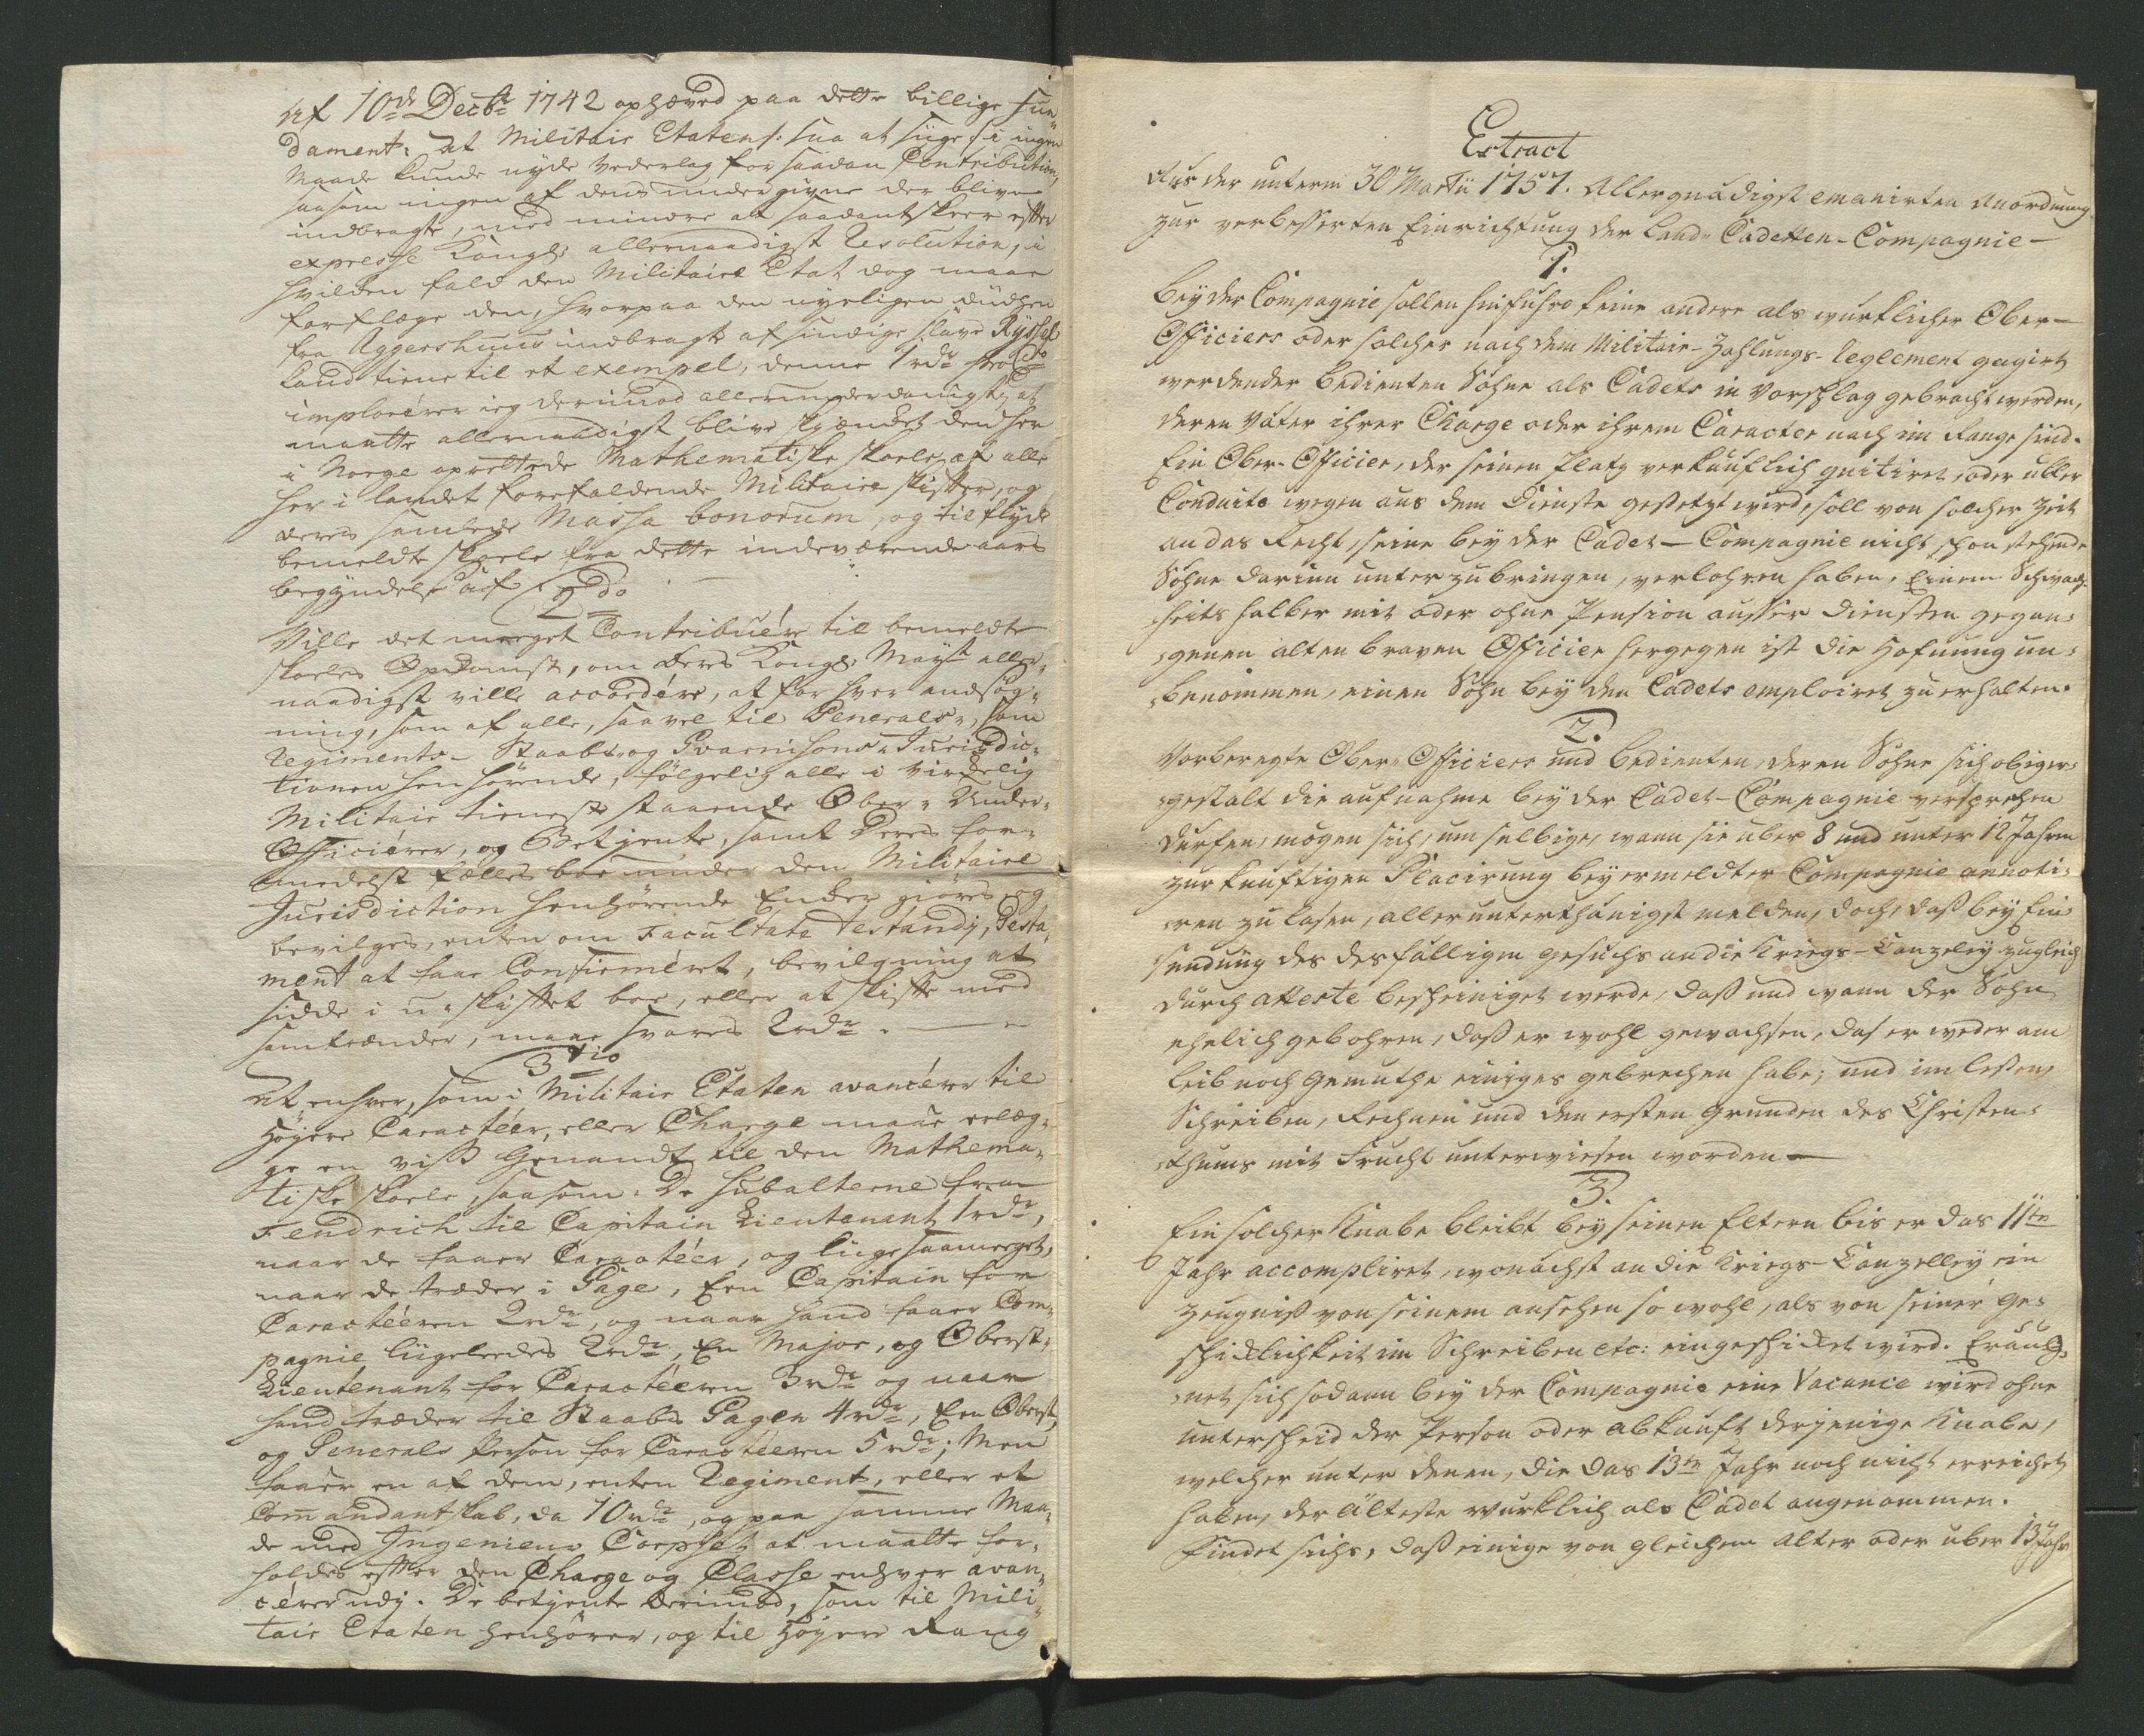 af 10de Decbr 1742 ophæved paa dette billige fun„
dament: at Militair Etatens: saa at siige :i ingen
Maade kunde nyde Vederlag for saadan Contribution,
saasom ingen af dens undergivne der blive
indbragte, med mindre at saadant skeer efter
expresse Kongl: allernaadigst Resolution, i
hvilken fald den Militaire Etat dog maae
forflege den, hvorpaa den nyeligen
fra Aggershuus indbragt afsindige slave
kand tiene til et exempel, denne 1 rdr
imploérer ieg derimod allerunderdanigst, at
maatte allernaadigst blive skiændet den her
i Norge oprettede Mathematiske skoele af alle
her i landet forefaldende Militaire skifter, og
deres samlede Massa bonorum, og tilflyde
bemeldte skoele fra dette indeværende aars
begyndelse af
2do
Ville det meeget Contribuére til bemeldte
skoeles Opkomst, om Deres Kongl: Mayst aller„
naadigst ville accordére, at for hver ansøg„
ning, som af alle, saavel til Generals-, som
Regiments- Staabs- og Gvarnisons-Jurisdic„
tionen henhörende, fölgelig alle i virkelig
Militair tieneste staaende Ober- Under„
Officiérer, og Betjente, samt Deres for„
medelst fælles boe under den Militaire
Jurisdiction henhörende Enker giöres og
bevilges, enten om Facultate Testandi, Testa„
ment at faae Confirméret, bevilgning at
sidde i u-skifttet boe, eller at skifte med
samfrænder, maae svares 2 rdr.
3tio
At enhver, som i Militair Etaten avancérer til
Höyere Caractéer, eller Charge maae erlæg„
ge en viss Genandt til den Mathema„
tiske skoele, saasom: De Subalterne fra
Fendrich til Capitain Lieutenant 1 rdr,
naar de faaer Caractéer, og liige saameeget,
naar de træder i Gage, Een Capitain for
Caractéeren 2 rdr, og naar hand faaer Com„
pagnie liigeledes 2 rdr, En Major, og Oberst„
Lieutenant for Caractéeren 3 rdr og naar
hand træder til Staabs Gagen 4 rdr, Een Oberst,
og Generals Person for Caractéeren 5 rdr; Men
faaer en af dem, enten Regiment, eller et
Com̄andantskab, da 10 rdr, og paa samme Maa„
de med Ingenieur Corpset at maatte for„
holdes efter den Charge og Classe enhver avan„
cérer udj. De betjente derimod, som til Mili„
tair Etaten henhörer, og til Höyere Rang
Extract
Aus der unterm 30 Martii 1757. Allergnädigst emanirten Anordnung
zur verbesserten Einrichtung der Land-Cadetten-Compagnie —
1.
Bey der Compagnie sollen hinfuhro keine andere als wurklicher Ober—
Officiers oder solcher nach dem Militair-Zahlungs-Reglement gagirt
werdender Bedienten Söhne als Cadets in Vorschlag gebracht werden,
deren Väter ihrer Charge oder ihrem Caracter nach im Range sind.
Ein Ober-Officier, der seinen Platz verkäuflich quitiret, oder ubler
Conduite wegen aus dem Dienste gesetzt wird, soll von solcher Zeit
an das Recht, seine bey der Cadet-Compagnie nicht schon stehende
Söhne darinn unterzubringen, verlohren haben, Einem Schwach„
heits halber mit oder ohne Pension ausser Diensten gegan„
genen alten braven Officier hergegen ist die Hofnung un„
benommen, einen Sohn bey den Cadets emploiret zu erhalten.
2.
Vorberegte Ober-Officiers und Bedienten, deren Söhne sich obiger„
gestalt die aufnahme bey der Cadet-Compagnie versprechen
durfen, mögen sich, um selbige, wann sie uber 8 und unter 12 Jahren
zur kunftigen Placirung bey ermeldter Compagnie annoti„
ren zu lasen, allerunterthänigst melden, doch, daß bey Ein„
sendung des desfälligen Gesuchs an die Kriegs-Canzeley zugleich
durch atteste bescheiniget werde, daß und wann der Sohn
ehelich gebohren, daß er wohl gewachsen, das er weder am
Leib noch Gemuthe einiges gebrechen habe; und im Lesen,
Schreiben, Rechnen und den ersten Grunden des Christen„
thums mit Frucht unterwiesen worden —
3.
Ein solcher Knabe bleibt bey seinen Eltern bis er das 11te
Jahr accompliret, wonächst an die Kriegs-Canzelley ein
Zeugniß von seinem ansehen so wohl, als von seiner Ge„
schicklichkeit im Schreiben etc: eingeschicket wird. Eräug„
net sich sodann bey der Compagnie eine Vacance wird ohne
unterscheid der Person oder Abkunft derjenige Knabe,
welcher unter denen, die das 13te Jahr noch nicht erreichet
haben, der Älteste wurklich als Cadet angenommen.
Findet sichs, daß einige von gleichem Alter oder uber 13 Jahr